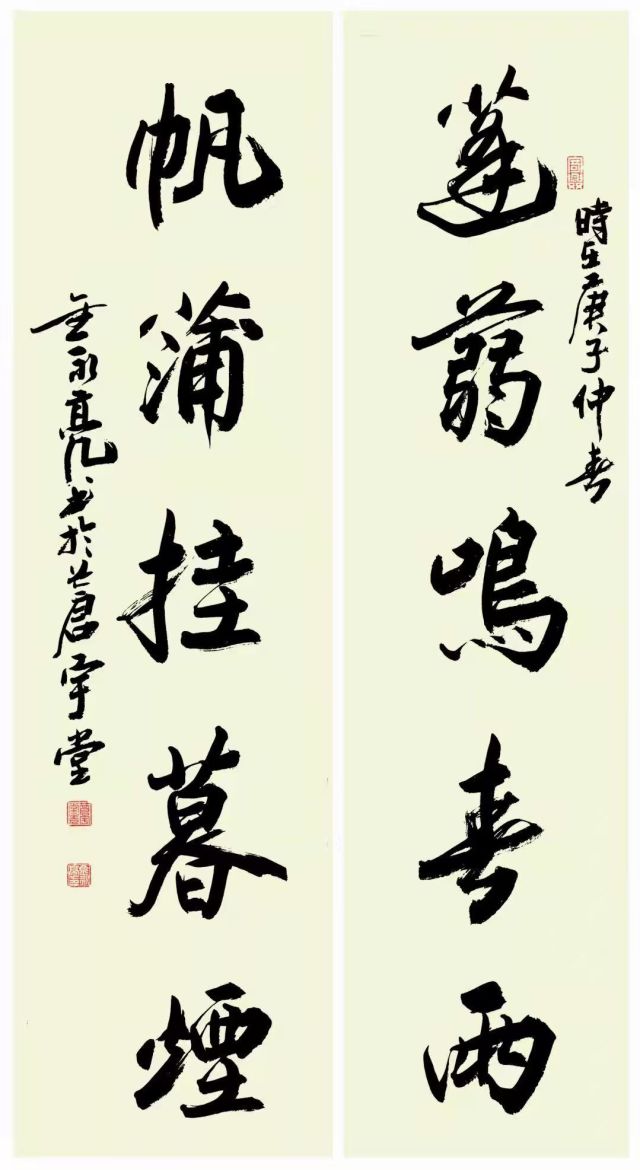 時在庚子仲春
蓬蒻鳴春雨
帆蒲挂暮煙
金永亮书於蒼宇堂